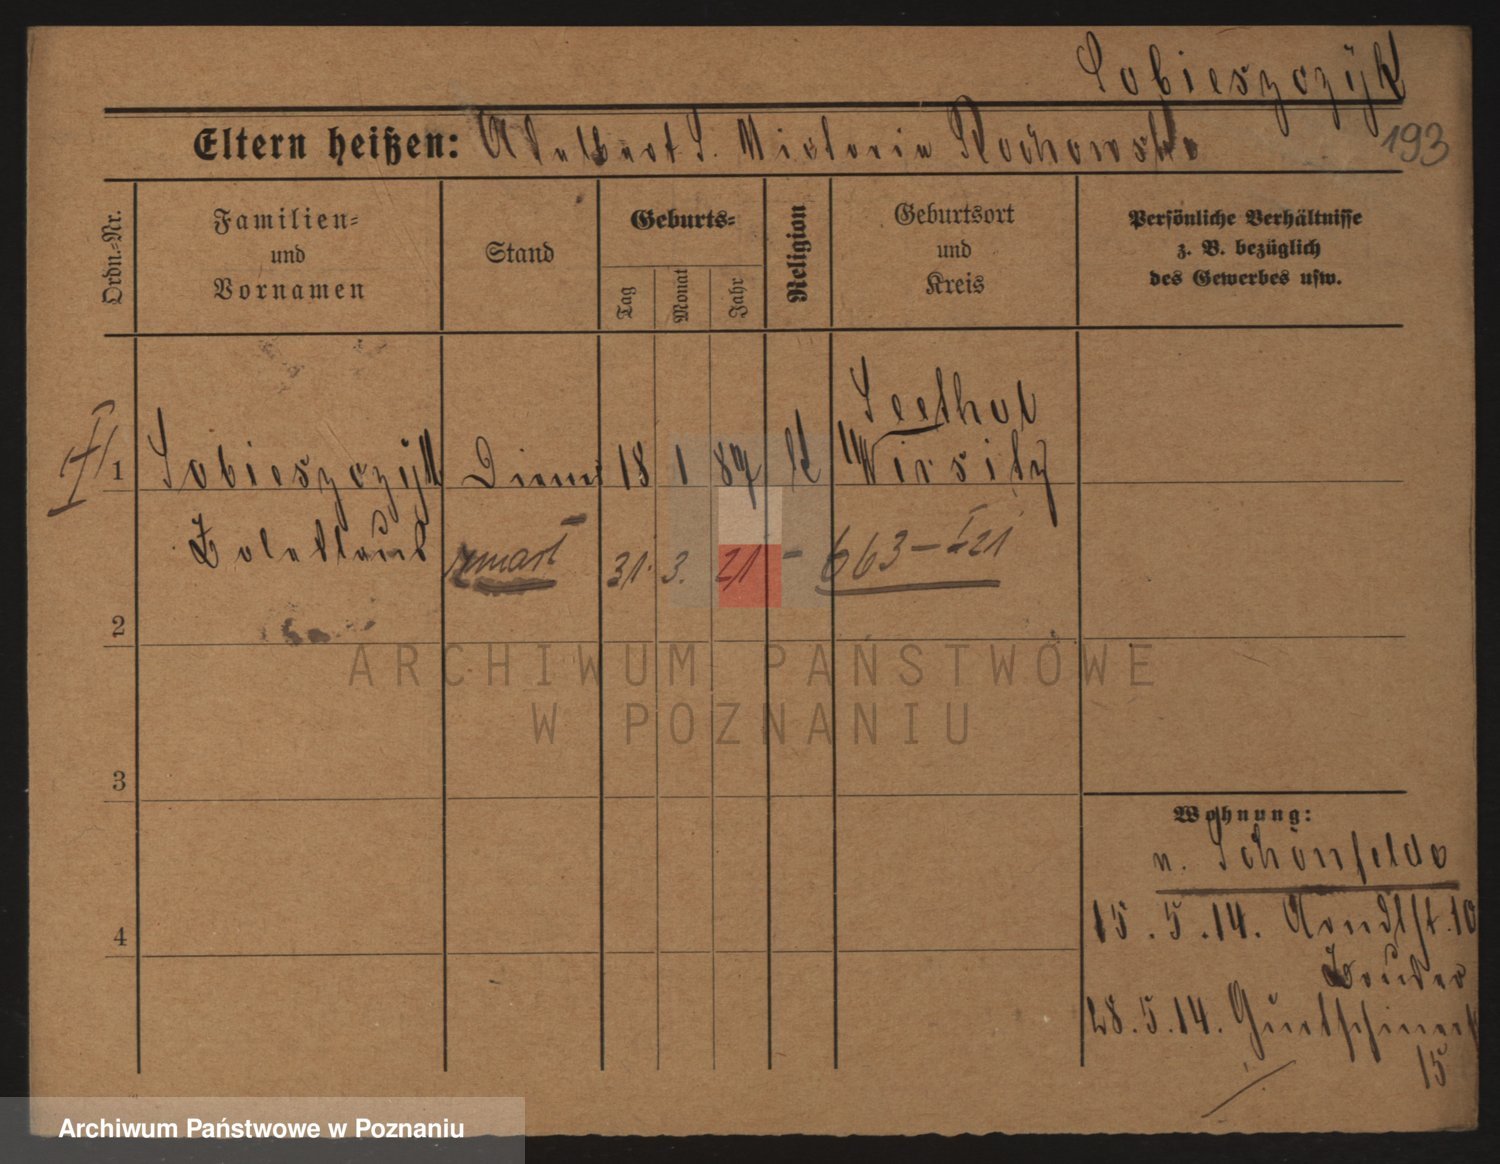 Sobieszczÿk
193
Eltern heißen: Adalbert S. Victoria Rochowska
Ordn.-Nr.
Familien-
und
Vornamen
Stand
Geburts-
Tag
Monat
Jahr
Religion
Geburtsort
und
Kreis
Persönliche Verhältnisse
z. B. bezüglich
des Gewerbes usw.
Seethal
1 Sobieszczÿk 18 1 87 K Wirsitz
zmarł 31. 3. 21 - 663-I21
2
3
4
Wohnung:
n. Schönfelde
15.5.14. Arndtst. 10
Bruder
28.5.14. 
15
ARCHIWUM PAŃSTWOWE
W POZNANIU
Archiwum Państwowe w Poznaniu